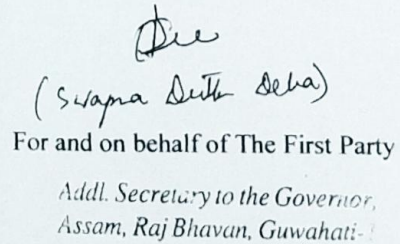 (Swapna Dutta Deka)
For and on behalf of The First Party
Addl. Secretary to the Governor,
Assam, Raj Bhavan, Guwahati-